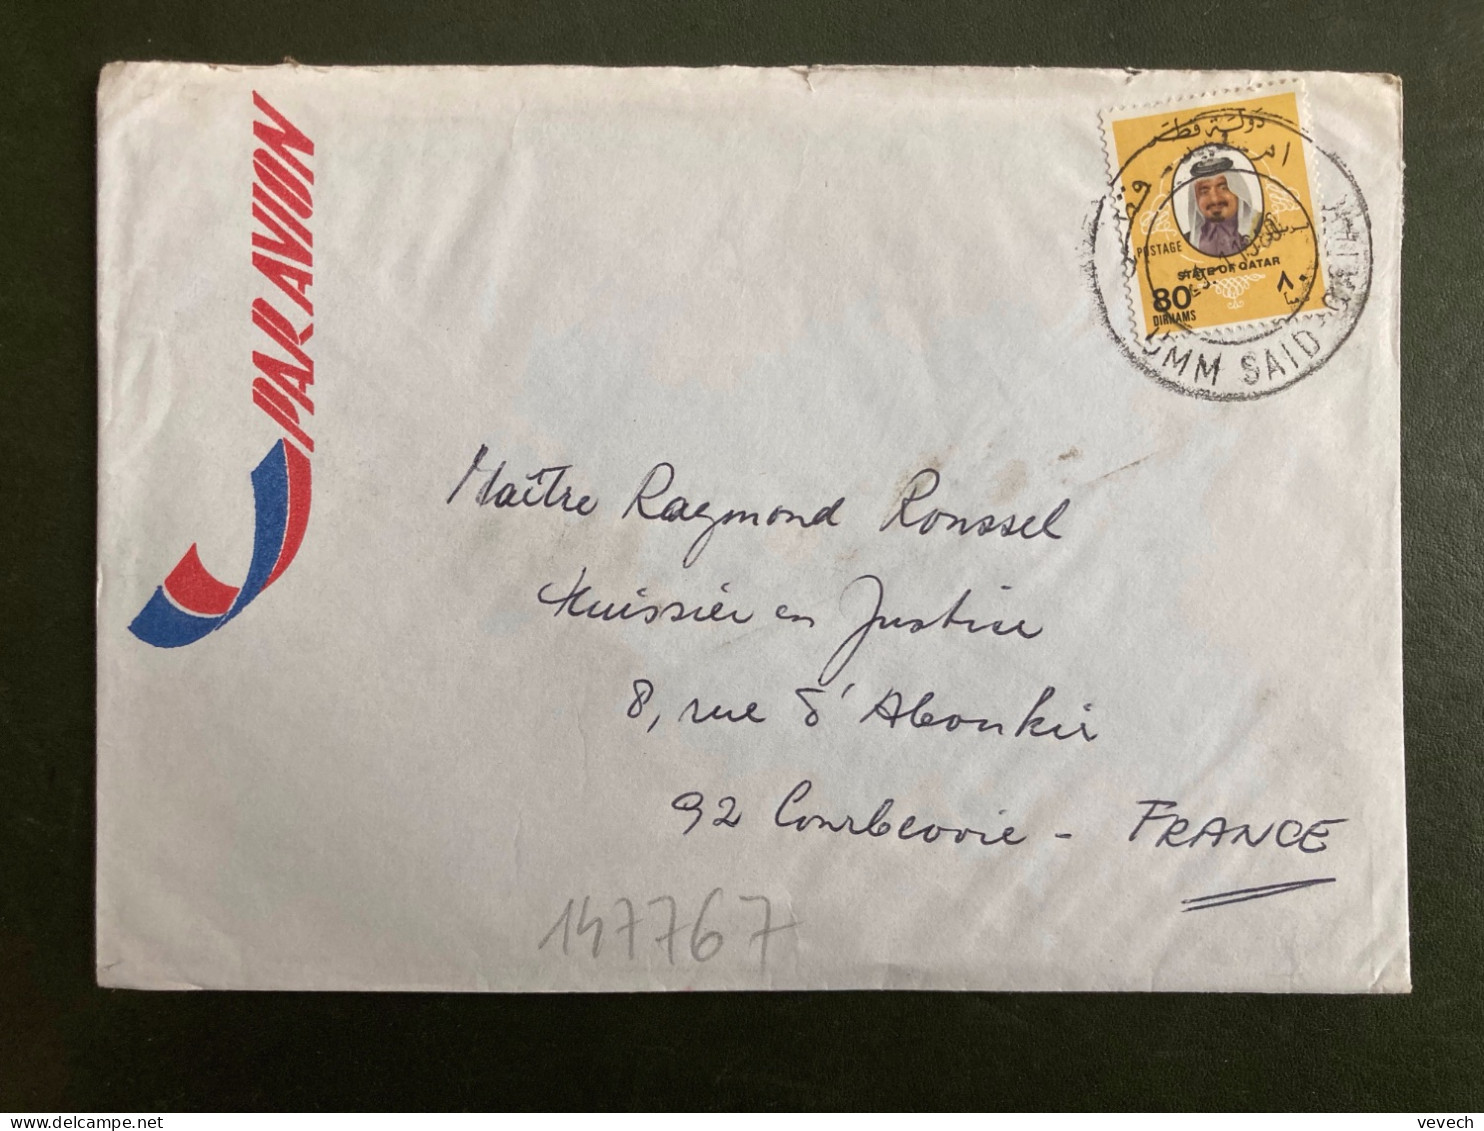 PAR AVION
دولة قطر
POSTAGE
STATE OF QATAR
80
DIRHAMS
٨٠
UMM SAID
Maître Raymond Roussel
Huissier en Justice
8, rue d'Aboukir
92 Courbevoie - FRANCE
147767
vevech